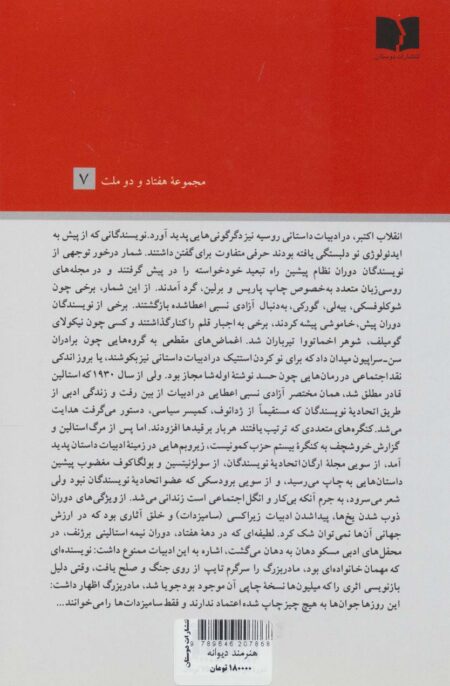 انتشارات دوستان
مجموعهٔ هفتاد و دو ملت ۷
انقلاب اکتبر، در ادبیات داستانی روسیه نیز دگرگونی‌هایی پدید آورد. نویسندگانی که از پیش به
ایدئولوژی نو دلبستگی یافته بودند حرفی متفاوت برای گفتن داشتند. شمار درخور توجهی از
نویسندگان دوران نظام پیشین راه تبعید خودخواسته را در پیش گرفتند و در مجله‌های
روسی‌زبان متعدد به‌خصوص چاپ پاریس و برلین، گرد آمدند. از این شمار، برخی چون
شوکلوفسکی، بیه‌لی، گورکی، به‌دنبال آزادی نسبی اعطا شده بازگشتند. برخی از نویسندگان
دوران پیش، خاموشی پیشه کردند، برخی به اجبار قلم را کنار گذاشتند و کسی چون نیکولای
گومیلف، شوهر اخماتووا تیرباران شد. اغماض‌های مقطعی به گروه‌هایی چون برادران
سن-سراپیون میدان داد که برای نو کردن استتیک در ادبیات داستانی نیز بکوشند، یا بروز اندکی
نقد اجتماعی در رمان‌هایی چون حسد نوشتهٔ اوله‌شا مجاز بود. ولی از سال ۱۹۳۰ که استالین
قادر مطلق شد، همان مختصر آزادی نسبی اعطایی در ادبیات از بین رفت و زندگی ادبی از
طریق اتحادیهٔ نویسندگان که مستقیماً از ژدانوف، کمیسر سیاسی، دستور می‌گرفت هدایت
می‌شد. کنگره‌های متعددی که ترتیب یافتند هر بار بر قیدها افزودند. اما پس از مرگ استالین و
گزارش خروشچف به کنگرهٔ بیستم حزب کمونیست، زیروبم‌هایی در زمینهٔ ادبیات داستان پدید
آمد، از سویی مجلهٔ ارگان اتحادیهٔ نویسندگان، از سولژنیتسین و بولگاکوف مغضوب پیشین
داستان‌هایی به چاپ می‌رسید، و از سویی برودسکی که عضو اتحادیهٔ نویسندگان نبود ولی
شعر می‌سرود، به جرم آنکه بی‌کار و انگل اجتماعی است زندانی می‌شد. از ویژگی‌های دوران
ذوب شدن یخ‌ها، پیدا شدن ادبیات زیراکسی (سامیزدات) و خلق آثاری بود که در ارزش
جهانی آن‌ها نمی‌توان شک کرد. لطیفه‌ای که در دههٔ هفتاد، دوران نیمه استالینی برژنف، در
محفل‌های ادبی مسکو دهان به دهان می‌گشت، اشاره به این ادبیات ممنوع داشت: نویسنده‌ای
که مهمان خانواده‌ای بود، مادربزرگ را سرگرم تایپ از روی جنگ و صلح یافت، وقتی دلیل
بازنویسی اثری که میلیون‌ها نسخهٔ چاپی آن موجود بود جویا شد، مادربزرگ اظهار داشت:
این روزها جوان‌ها به هیچ چیز چاپ شده اعتماد ندارند و فقط سامیزدات‌ها را می‌خوانند...
انتشارات دوستان
789646 207868
هنرمند دیوانه
۱۸۰۰۰۰ تومان